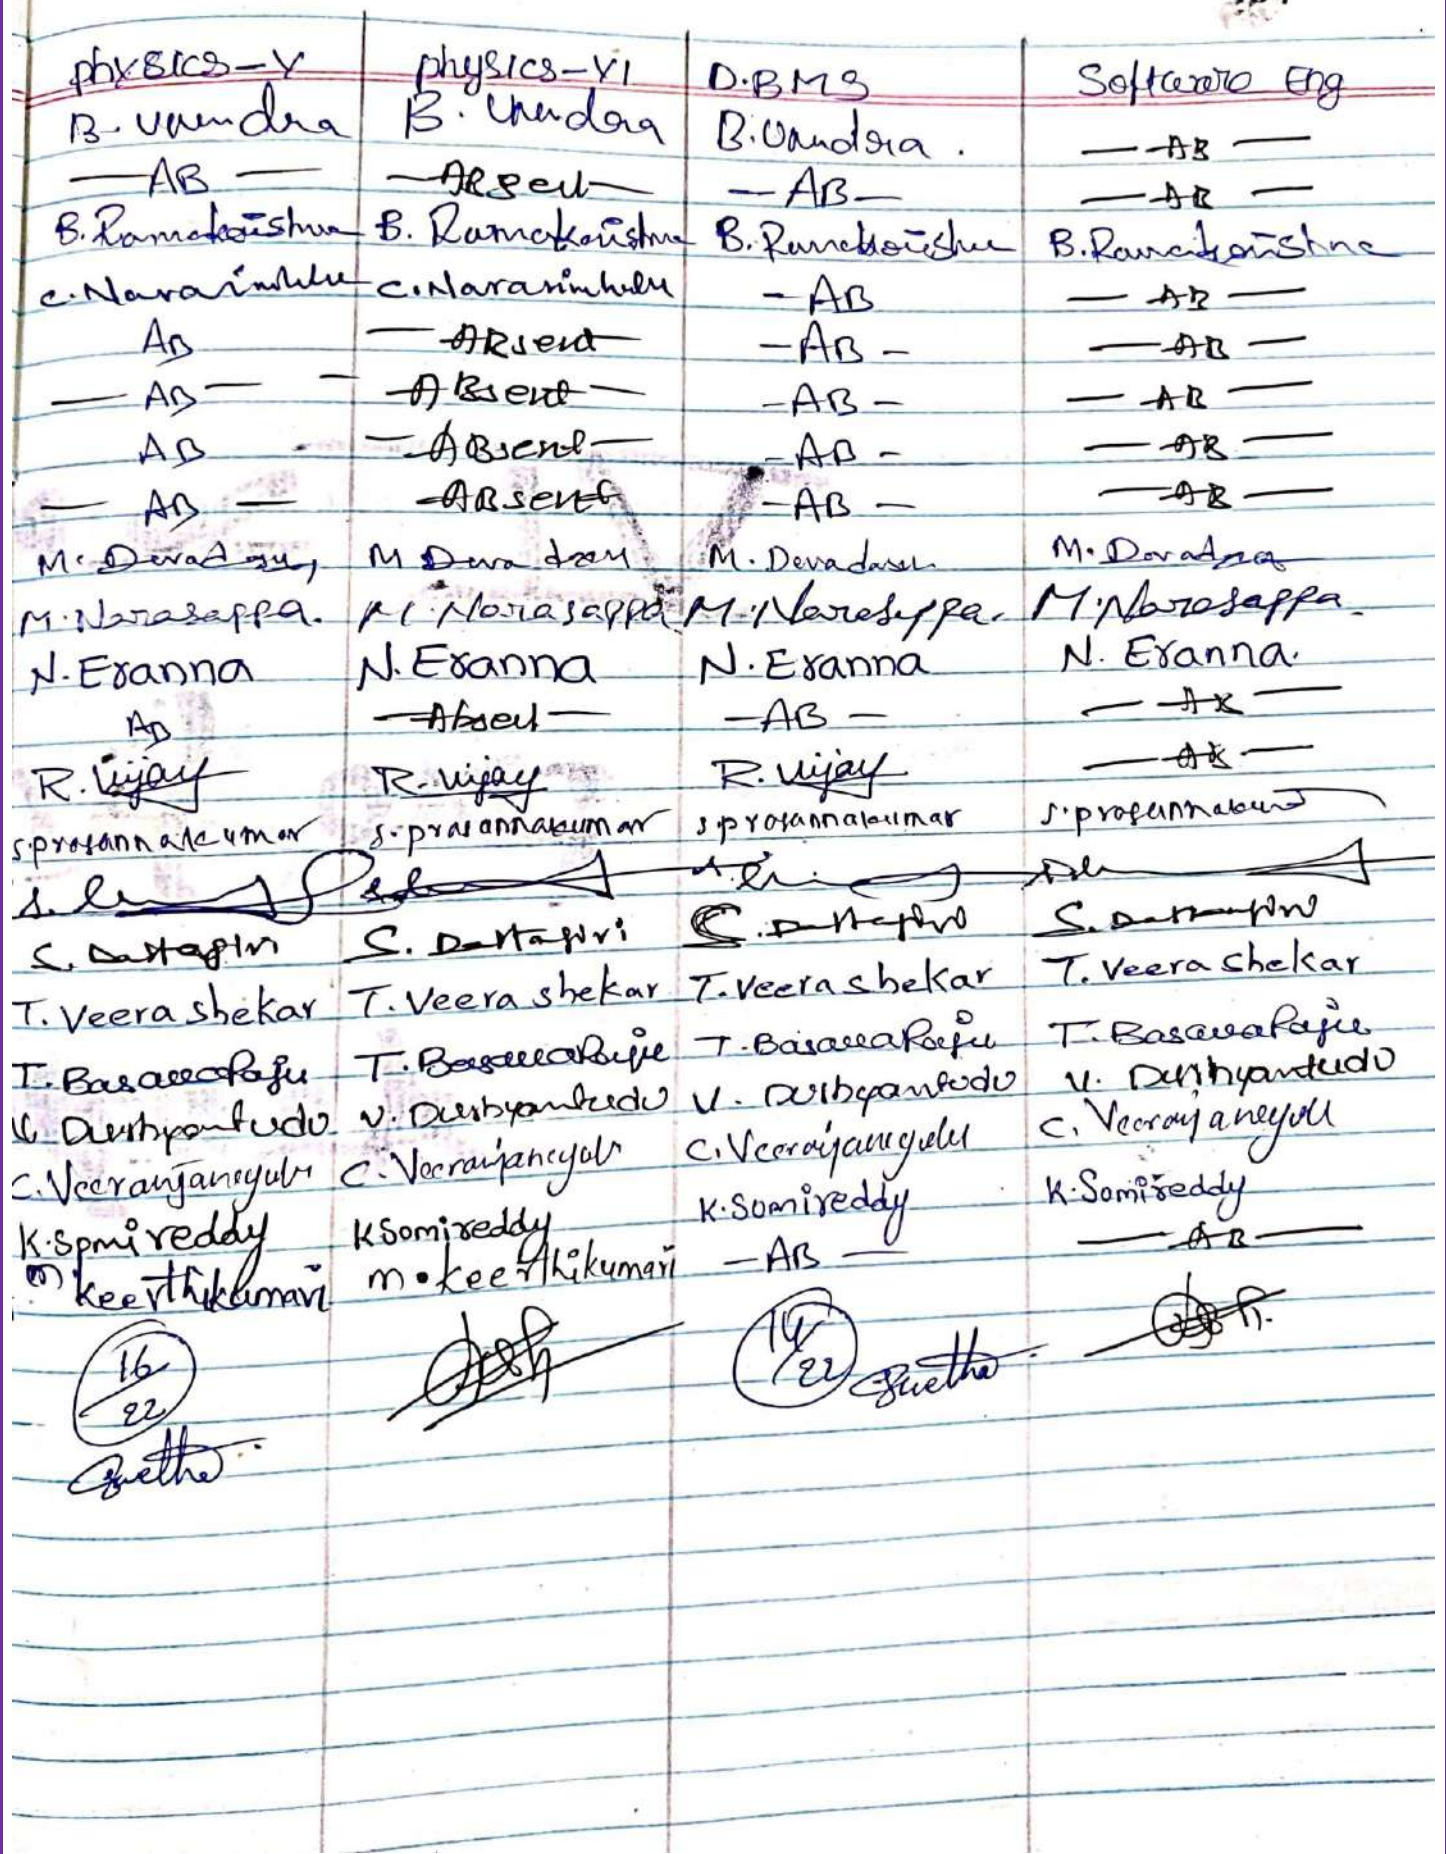 physics-V physics-VI D.BMS Software Eng
B. B. B.
— AB — — Absent — — AB — — AB —
— AB —
B. Ramakrishna B. Ramakrishna B. Ramakrishna B. Ramakrishna
C. Narasimhulu C. Narasimhulu - AB — AB —
AB — Absent — - AB - — AB —
— AB — — Absent — - AB - — AB —
AB — Absent — - AB - — AB —
— AB — - Absent - AB - — AB —
M. Devadasu M Devadasu M. Devadasu M. Devadasu
M. Narasappa. M. Narasappa M. Narasappa. M. Narasappa.
N. Eranna N. Eranna N. Eranna N. Eranna.
AB — Absent — — AB — — AB —
R. Vijay R. Vijay R. Vijay — AB —
S. prasannakumar S. prasannakumar S prasannakumar S. prasannakumar
S. Dastagiri S. Dastagiri S. Dastagiri S. Dastagiri
T. Veerashekar T. Veerashekar T. Veerashekar T. Veerashekar
T. BasavaRaju T. BasavaRaju T. BasavaRaju T. BasavaRaju
V. Dushyantudu V. Dushyantudu V. Dushyantudu V. Dushyantudu
C. Veeranjaneyulu C. Veeranjaneyulu C. Veeranjaneyulu C. Veeranjaneyulu
K. Somireddy K Somireddy K. Somireddy K. Somireddy
m. keerthikumari m. keerthikumari — AB — — AB —
16/22 14/22